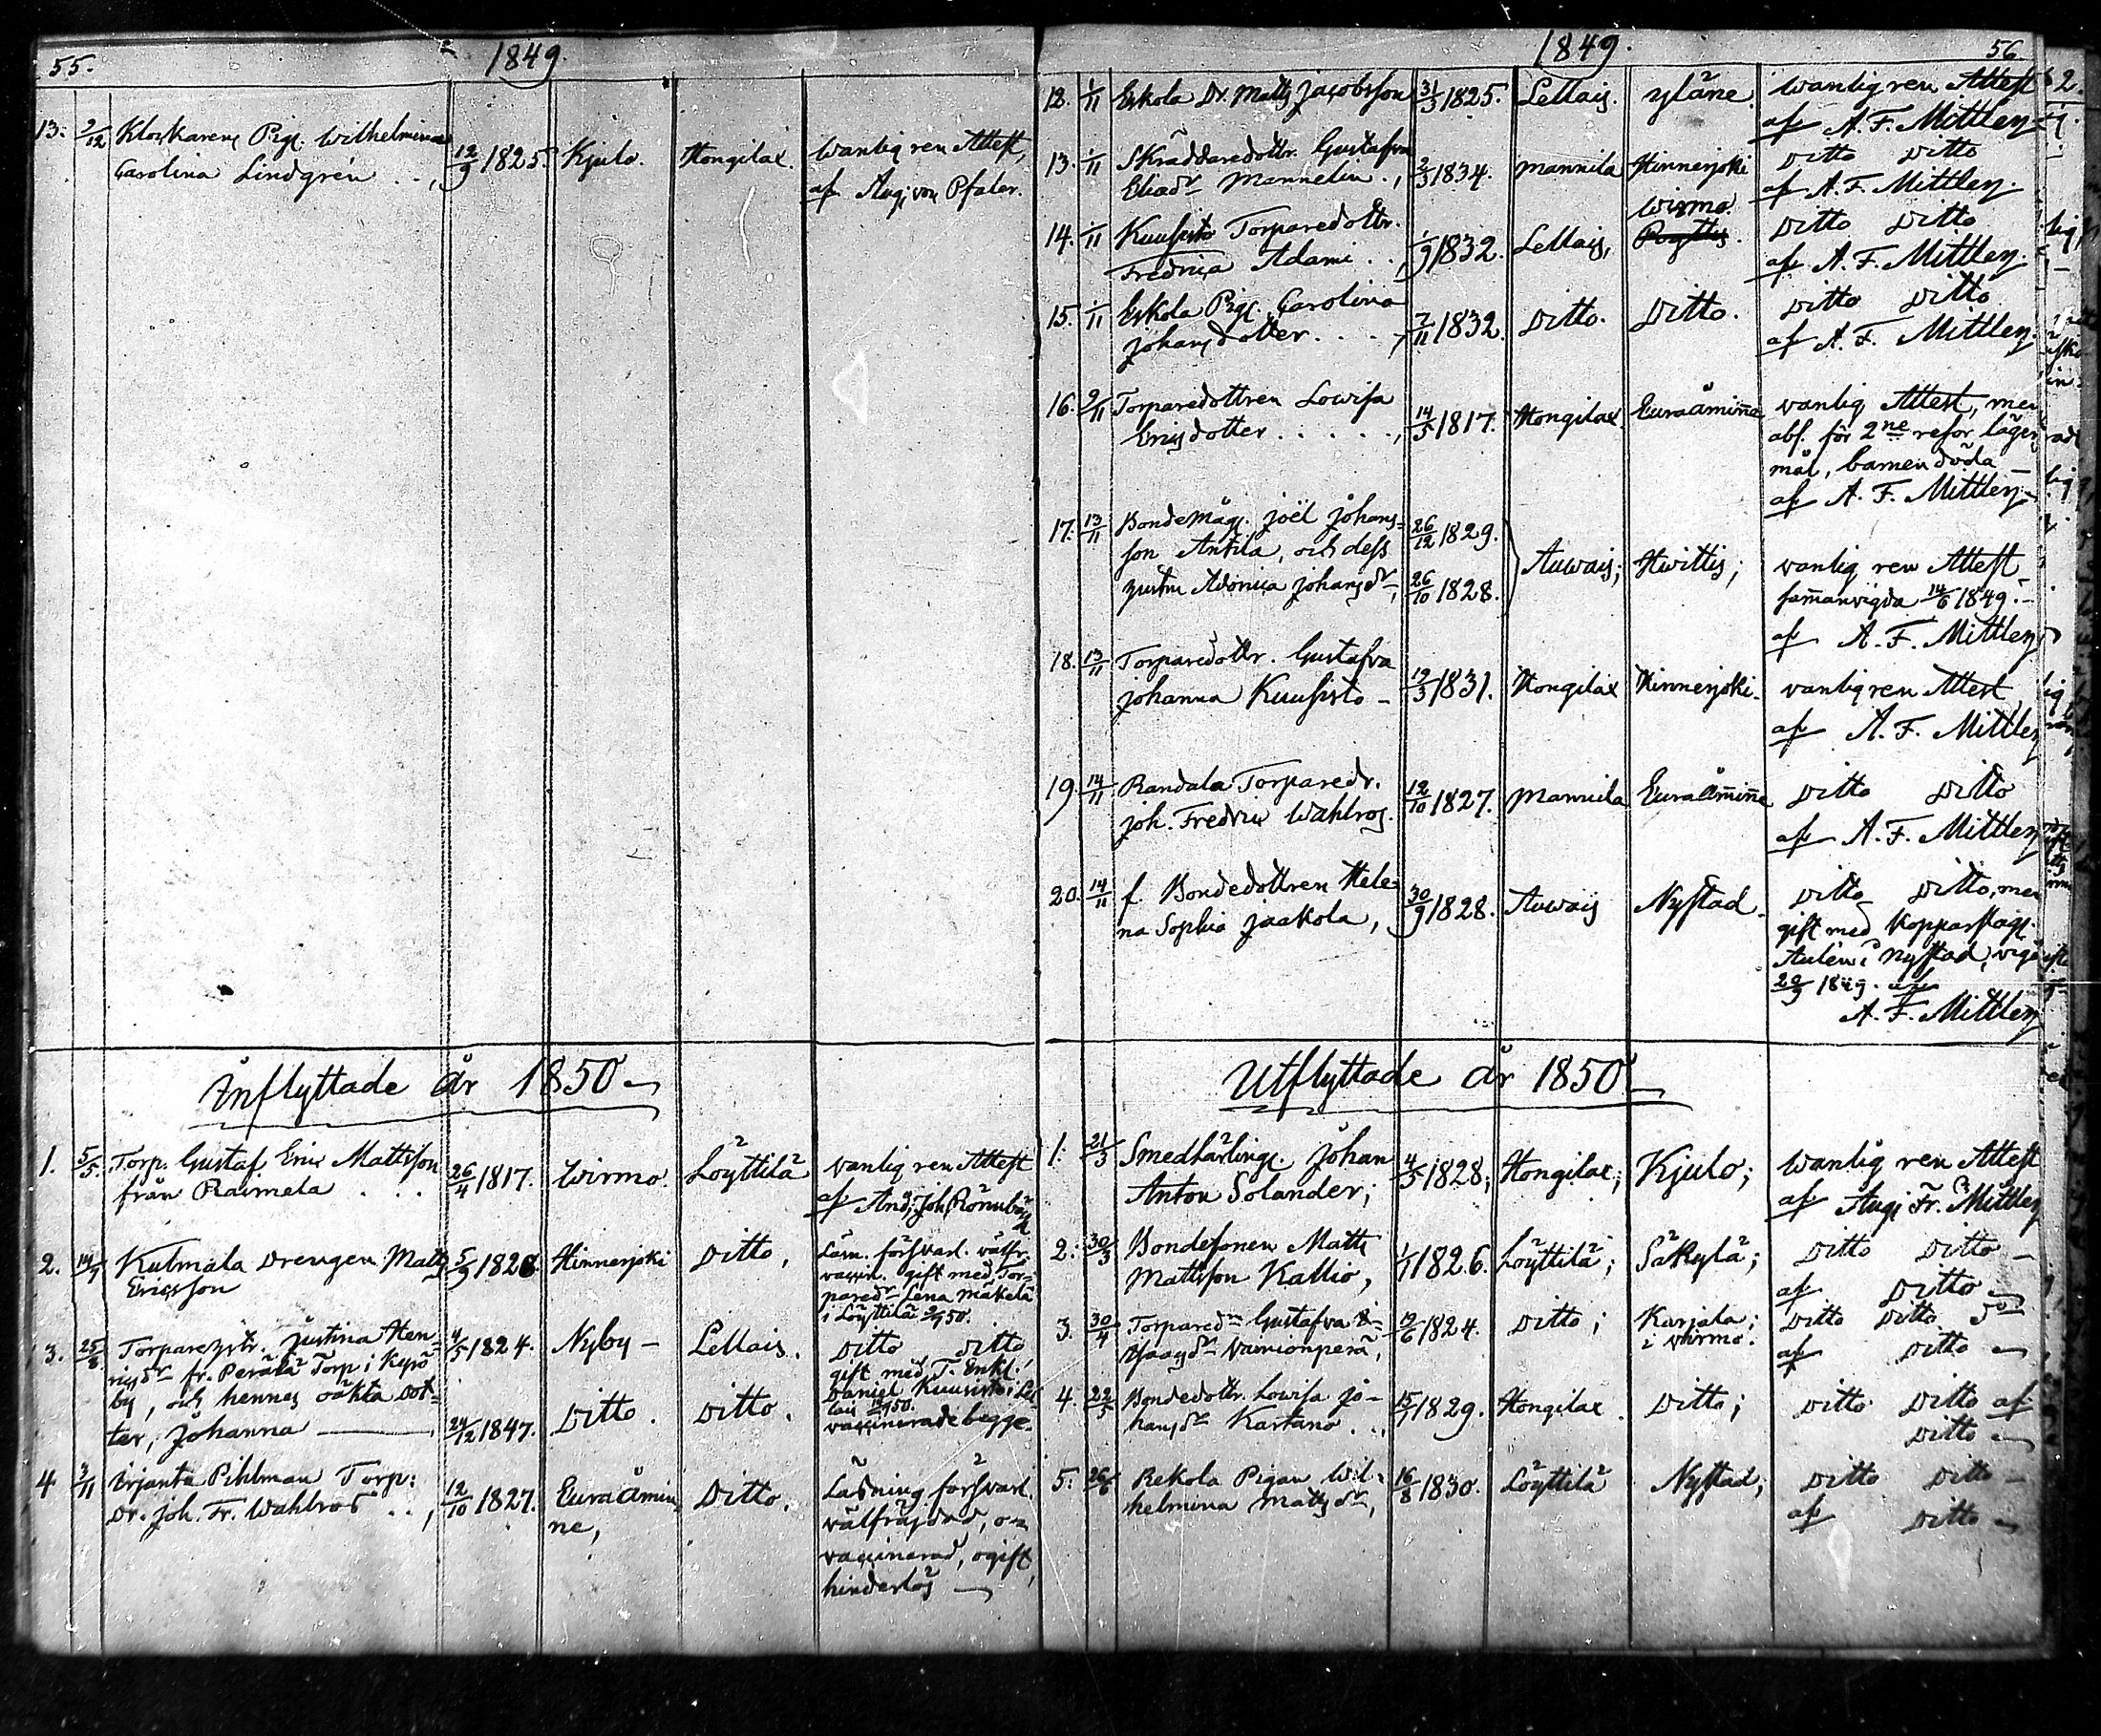 55.
1849.
13. 9/12 Klockarens Pig. Wilhelmina
Carolina Lindgrén . . , 12/9 1825. Kjulo. Hongilax. Wanlig ren Attest,
af Aug: von Pfaler.
Inflyttade år 1850
1. 5/5. Torp. Gustaf Eric Mattsson
från Raimela . . . 26/4 1817. Wirmo. Löyttilä vanlig ren Attest
af And: Joh: Rönnbäck
2. Kulmala Drengen Matts
Ericsson 5/9 1828. Hinnerjoki Ditto, Läsn. försvarl. wälfr.
vaccin. gift med Tor-
pared:r Lena Mäkelä
i Löyttilä 50.
3. 25/8. Torpareystr. Justina Hen-
ricsd:r fr. Perälä Torp i Kyrö
by, och hennes oäkta Dot-
ter, Johanna 4/5 1824. Nyby – Lellais. Ditto ditto
gift med T. Enkl.
Daniel Kuusisto i Lel-
lais 50.
24/12 1847. Ditto. Ditto. vaccinerade begge.
4 Pihlman Torp:
Dr. Joh. Fr. Wahlros . . , 12/10 1827. Euraåmin-
ne, Ditto. Läsning försvarl.
välfräjdad, o-
vaccinerad, ogift,
hinderlös
1849.
56.
12. 1/11 Eskola Dr. Matts Jacobsson 31/3 1825. Lellais. Yläne. Wanlig ren Attest
af A. F. Mittler
13. 1/11 Skräddaredottr. Gustafva
Eliæd:r Mannelin . , 2/3 1834. Mannila Hinnerjoki Ditto Ditto
af A. F. Mittler.
14. 1/11 Kuusisto Torparedottr.
Fredrica Adami . . , 1/9 1832. Lellais, Wirmo. Ditto Ditto
af A. F. Mittler.
15. 1/11 Eskola Pig. Carolina
Johansdotter . . . , 7/11 1832. Ditto. Ditto. Ditto Ditto
af A. F. Mittler.
16. 9/11 Torparedottren Lovisa
Ericsdotter . . . . . , 14/5 1817. Hongilax Euraåmin̄e vanlig Attest, men
abs. för 2ne refor läger
mål, barnen döda –
af A. F. Mittler
17. 13/11 Bondemåg. Joël Johans-
son Antila, och dess
hustru Adonica Johansd:r, 26/12 1829.
26/10 1828. Auvais; Hvittis; vanlig ren Attest
sam̄anvigda 14/6 1849. –
af A. F. Mittler
18. 13/11 Torparedottr. Gustafva
Johanna Kuusisto – 19/3 1831. Hongilax Hinnerjoki. vanlig ren Attest
af A. F. Mittler
19. 14/11 Randala Torparedr.
Joh. Fredric Wahlros. 12/10 1827. Mannila Euraåmin̄e Ditto Ditto
af A. F. Mittler
20. 14/11 f. Bondedottren Hele-
na Sophia Jaakola, 30/9 1828. Auvais Nystad. Ditto Ditto, men
gift med Kopparslag.
Aulén i Nystad, vigd
1849. af
A. F. Mittler
Utflyttade år 1850
1. 21/3 Smedlärling. Johan
Anton Solander; 4/5 1828; Hongilax; Kjulo; Wanlig ren Attest
af Aug: Fr. Mittler
2. 30/3 Bondesonen Matts
Mattsson Kallio, 1/1 1826. Löyttilä; Säkylä; Ditto Ditto –
af Ditto
3. 30/4 Torpared:n Gustafva
Isaacsd:r Vainionperä, 19/6 1824. Ditto; Karjala;
i Virmo. Ditto Ditto
af Ditto
4. 22/5 Bondedottr. Lovisa Jo-
hansd:r Kartano . . , 15/7 1829. Hongilax. Ditto; Ditto Ditto af
Ditto
5. 26/6 Rekola Pigan Wil-
helmina Mattsd:r, 16/8 1830. Löyttilä Nystad; Ditto Ditto –
af Ditto